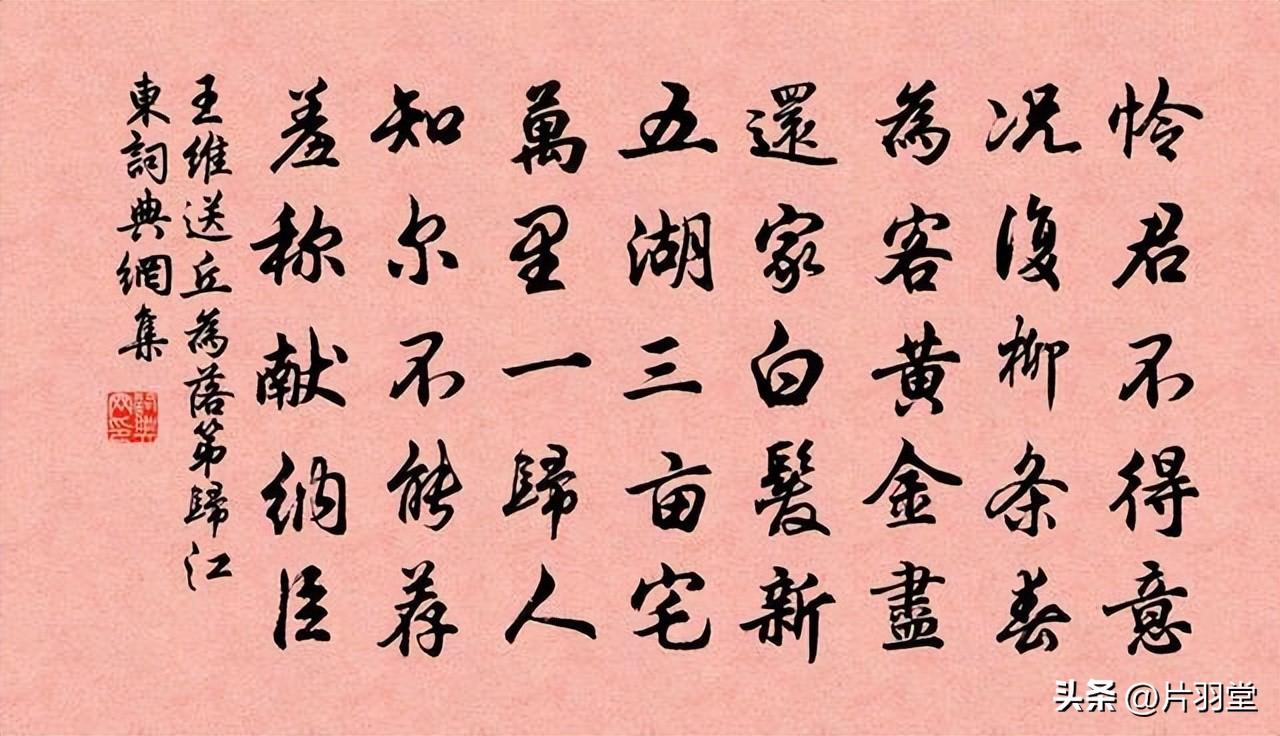 怜君不得意
况復柳条春
為客黄金盡
還家白髮新
五湖三亩宅
萬里一歸人
知尔不能荐
羞称献納臣
王維送丘為落第歸江
東詞典網集
头条 @片羽堂